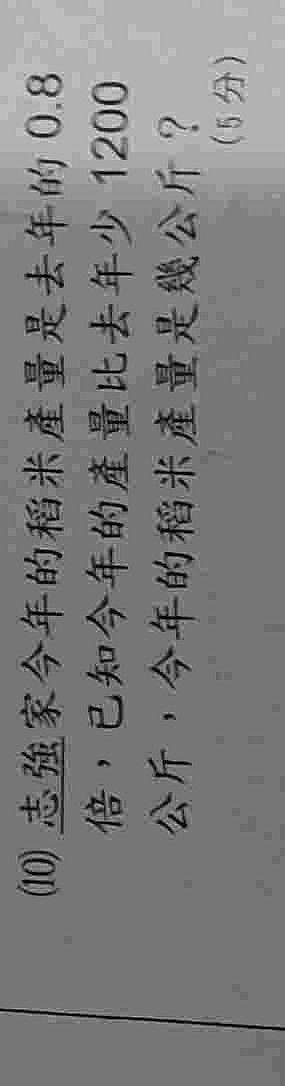 (10) 志強家今年的稻米產量是去年的 0.8
倍，已知今年的產量比去年少 1200
公斤，今年的稻米產量是幾公斤？
(5 分)